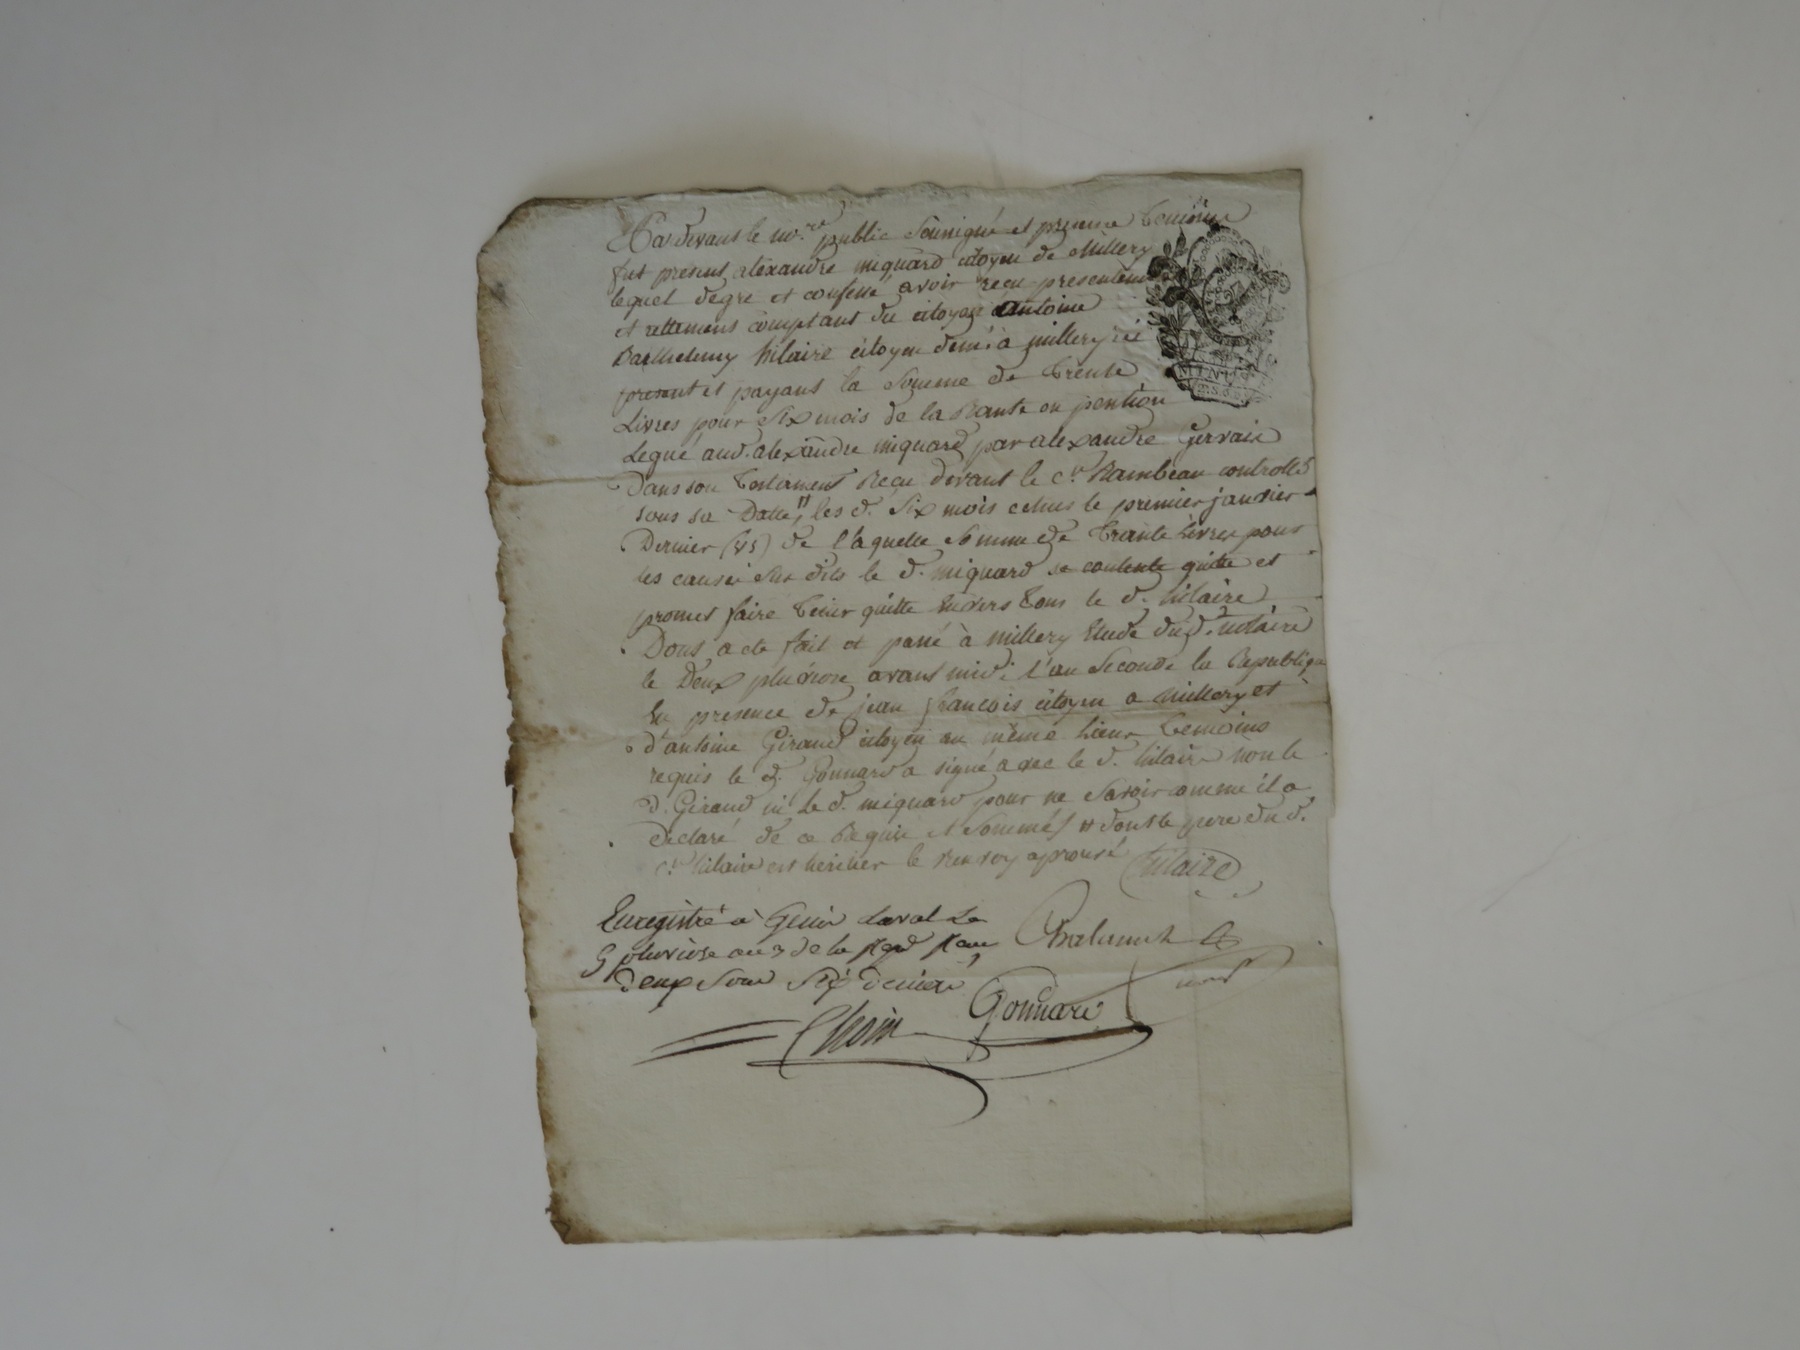 Par devant le no.re public soussigné et presence temoins
fut present alexandre miquard citoyen de Millery
lequel de gre et confesse avoir recu presentement
et rellemens comptant du citoyen antoine
Barthelemy hilaire citoyen dem.t à millery ici
present et payant la somme de trente
Livres pour six mois de la rante ou pention
Legué aud. alexandre miquard par alexandre Gervais
dans son testament Recu devant le c.n Rambeau controllé
sous sa Datte, les d. six mois echus le premier janvier
Dernier (vs) de laquelle somme de trante livres pour
les causes sus dits le d. miquard se contente quitte et
promet faire tenir quitte envers tous le d. hilaire
Dont acte fait et passé à millery Etude dud. notaire
le Deux pluviose avant midi l'an second de la Republique
En presence de jean françois citoyen a millery et
d'antoine Giraud citoyen au même lieux temoins
requis le d. Gonnard a signé avec le d. hilaire non le
d. Giraud ni Le d. miquard pour ne savoir comme il a
declaré de ce Requis et sommés # dont le pere du d.
c.n hilaire est heritier le renvoy aprouvé
hilaire
Enregistré à Genis Laval Le
5 pluviose an 2 de la Rep.
deux sous six deniers
Gonnard
MINUTE